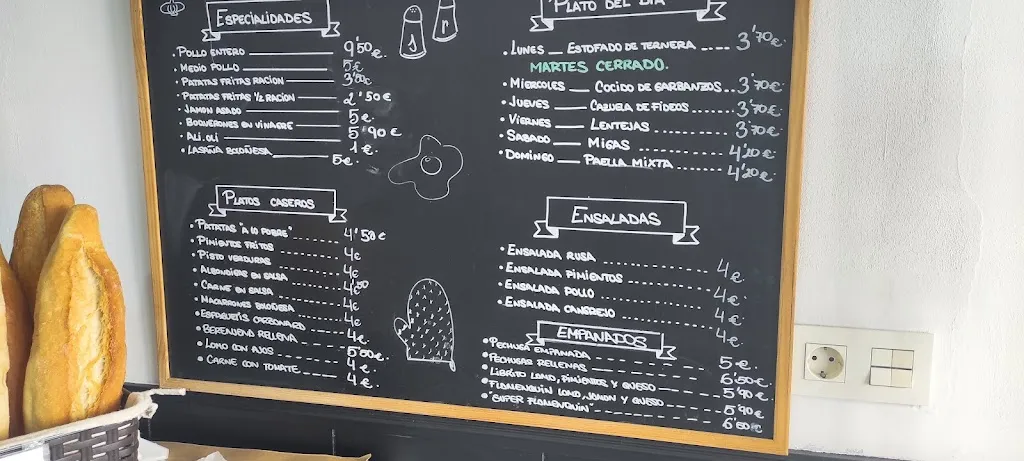 ESPECIALIDADES
• POLLO ENTERO 9'50€
• MEDIO POLLO 5€
• PATATAS FRITAS RACION 3'50€
• PATATAS FRITAS 1/2 RACION 2'50€
• JAMON ASADO 5€
• BOQUERONES EN VINAGRE 5'90€
• ALI.OLI 1€
• LASAÑA BOLOÑESA 5€
PLATOS CASEROS
• PATATAS "A LO POBRE" 4'50€
• PIMIENTOS FRITOS 4€
• PISTO VERDURAS 4€
• ALBONDIGAS EN SALSA 4'50
• CARNE EN SALSA 4€
• MACARRONES BOLOÑESA 4€
• ESPAGUETIS CARBONARA 4€
• BERENJENA RELLENA 5'50€
• LOMO CON AJOS 4€
• CARNE CON TOMATE 4€
PLATO DEL DIA
• LUNES — ESTOFADO DE TERNERA 3'70€
MARTES CERRADO.
• MIERCOLES — COCIDO DE GARBANZOS 3'70€
• JUEVES — CAZUELA DE FIDEOS 3'70€
• VIERNES — LENTEJAS 3'70€
• SABADO — MIGAS 4'20€
• DOMINGO — PAELLA MIXTA 4'20€
ENSALADAS
• ENSALADA RUSA 4€
• ENSALADA PIMIENTOS 4€
• ENSALADA POLLO 4€
• ENSALADA CANGREJO 4€
EMPANADOS
• PECHUGA EMPANADA 5€
• PECHUGAS RELLENAS 6'50€
• LIBRITO LOMO, PIMIENTOS Y QUESO 5'90€
• FLAMENQUIN LOMO, JAMON Y QUESO 5'90€
• "SUPER FLAMENQUIN" 6'50€